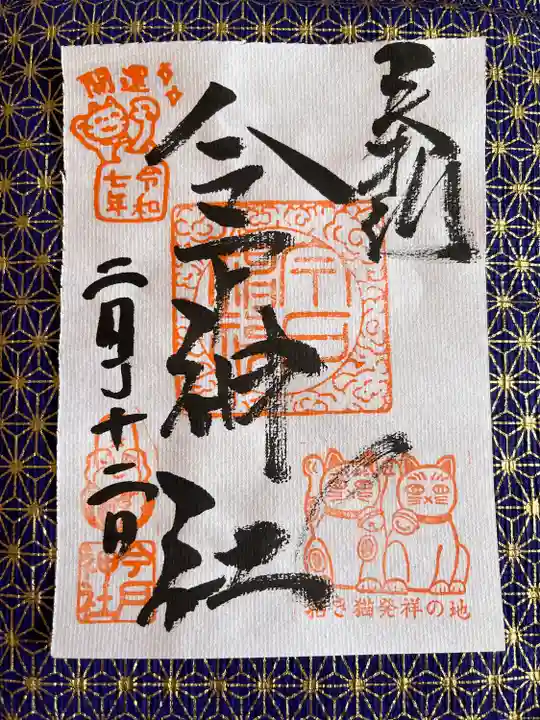 奉拝
今戸神社
開運
令和
七年
二月二十二日
今戸
神社
招き猫発祥の地